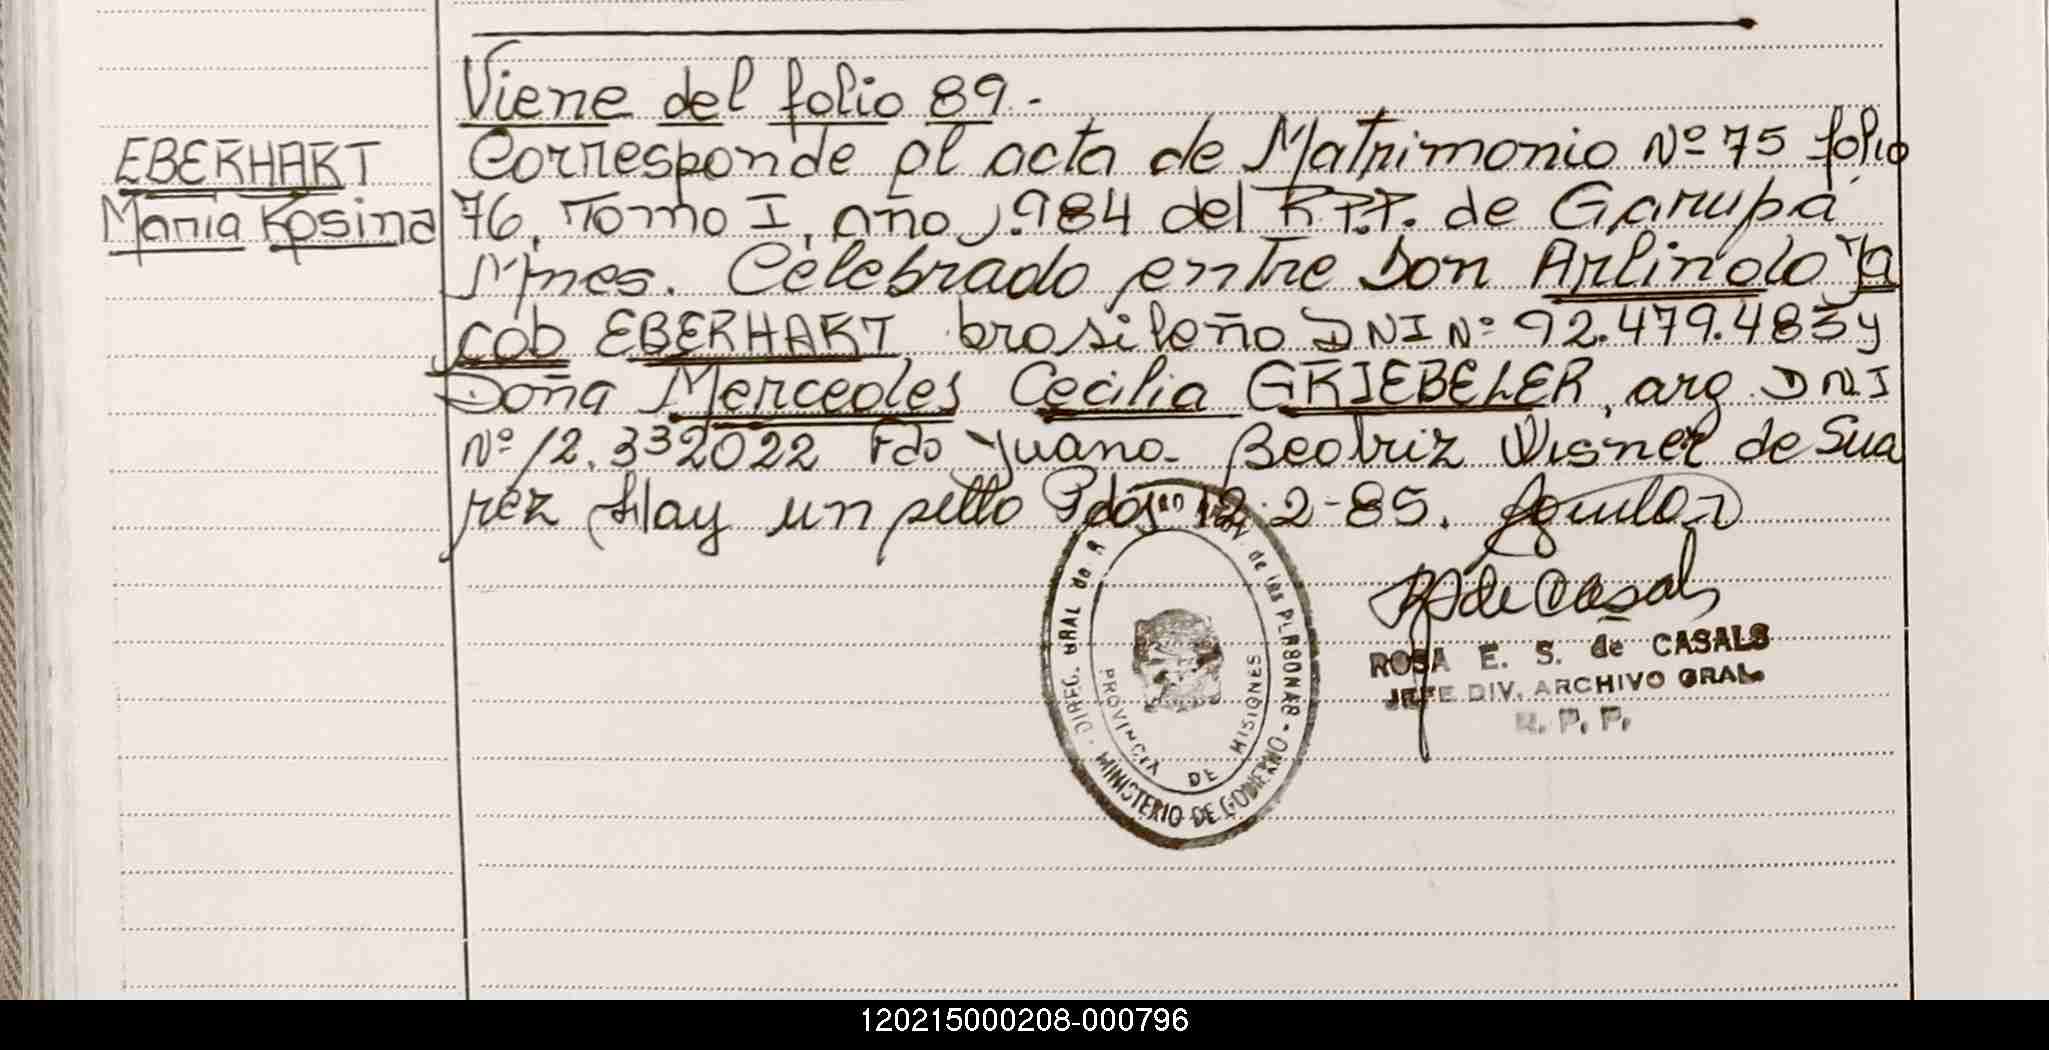 Viene del folio 89.-
EBERHART
Maria Rosina
Corresponde al acta de Matrimonio Nº 75 folio
76, Tomo I, año 1.984 del R.P.P. de Garupá
Mnes. Celebrado entre Don Arlindo Ja
cob EBERHART brasileño DNI Nº 92.479.483 y
Doña Mercedes Cecilia GRIEBELER, arg. DNI
Nº 12.332022 Fdo Juana Beatriz Wisner de Sua
rez Hay un sello Pdos 12-2-85.
R S de Casals
ROSA E. S. de CASALS
JEFE DIV. ARCHIVO GRAL.
R. P. P.
DIREC. GRAL de R de las PERSONAS - MINISTERIO DE GOBIERNO -
PROVINCIA DE MISIONES
120215000208-000796